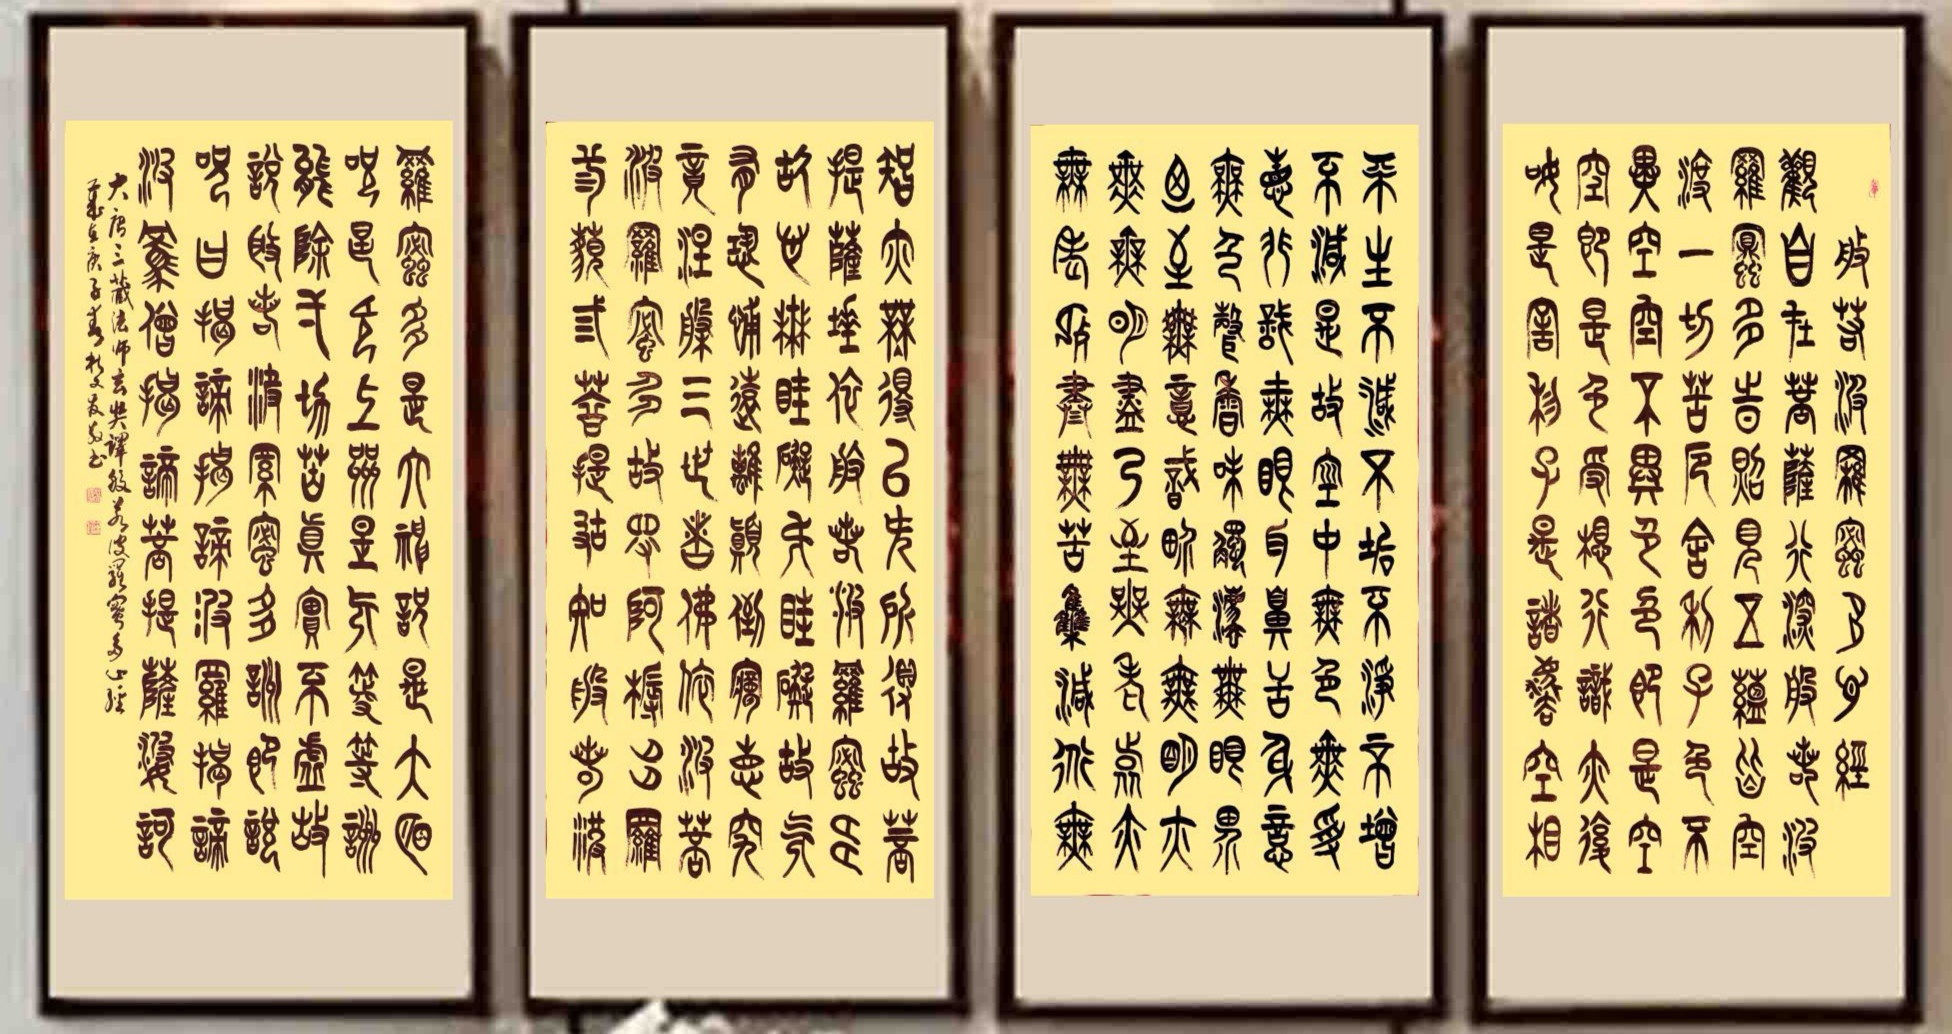 般若波羅蜜多心經
觀自在菩薩行深般若波
羅蜜多時照見五蘊皆空
度一切苦厄舍利子色不
異空空不異色色即是空
空即是色受想行識亦復
如是舍利子是諸法空相
不生不滅不垢不淨不增
不減是故空中無色無受
想行識無眼耳鼻舌身意
無色聲香味觸法無眼界
乃至無意識界無無明亦
無無明盡乃至無老死亦
無老死盡無苦集滅道無
智亦無得以無所得故菩
提薩埵依般若波羅蜜多
故心無罣礙无罣礙故无
有恐怖遠離顛倒夢想究
竟涅槃三世諸佛依般若
波羅蜜多故得阿耨多羅
三藐三菩提故知般若波
羅蜜多是大神咒是大明
咒是无上咒是无等等咒
能除一切苦真實不虛故
說般若波羅蜜多咒即說
咒曰揭諦揭諦波羅揭諦
波羅僧揭諦菩提薩婆訶
大唐三藏法師玄奘譯般若波羅蜜多心經
歲在庚子書